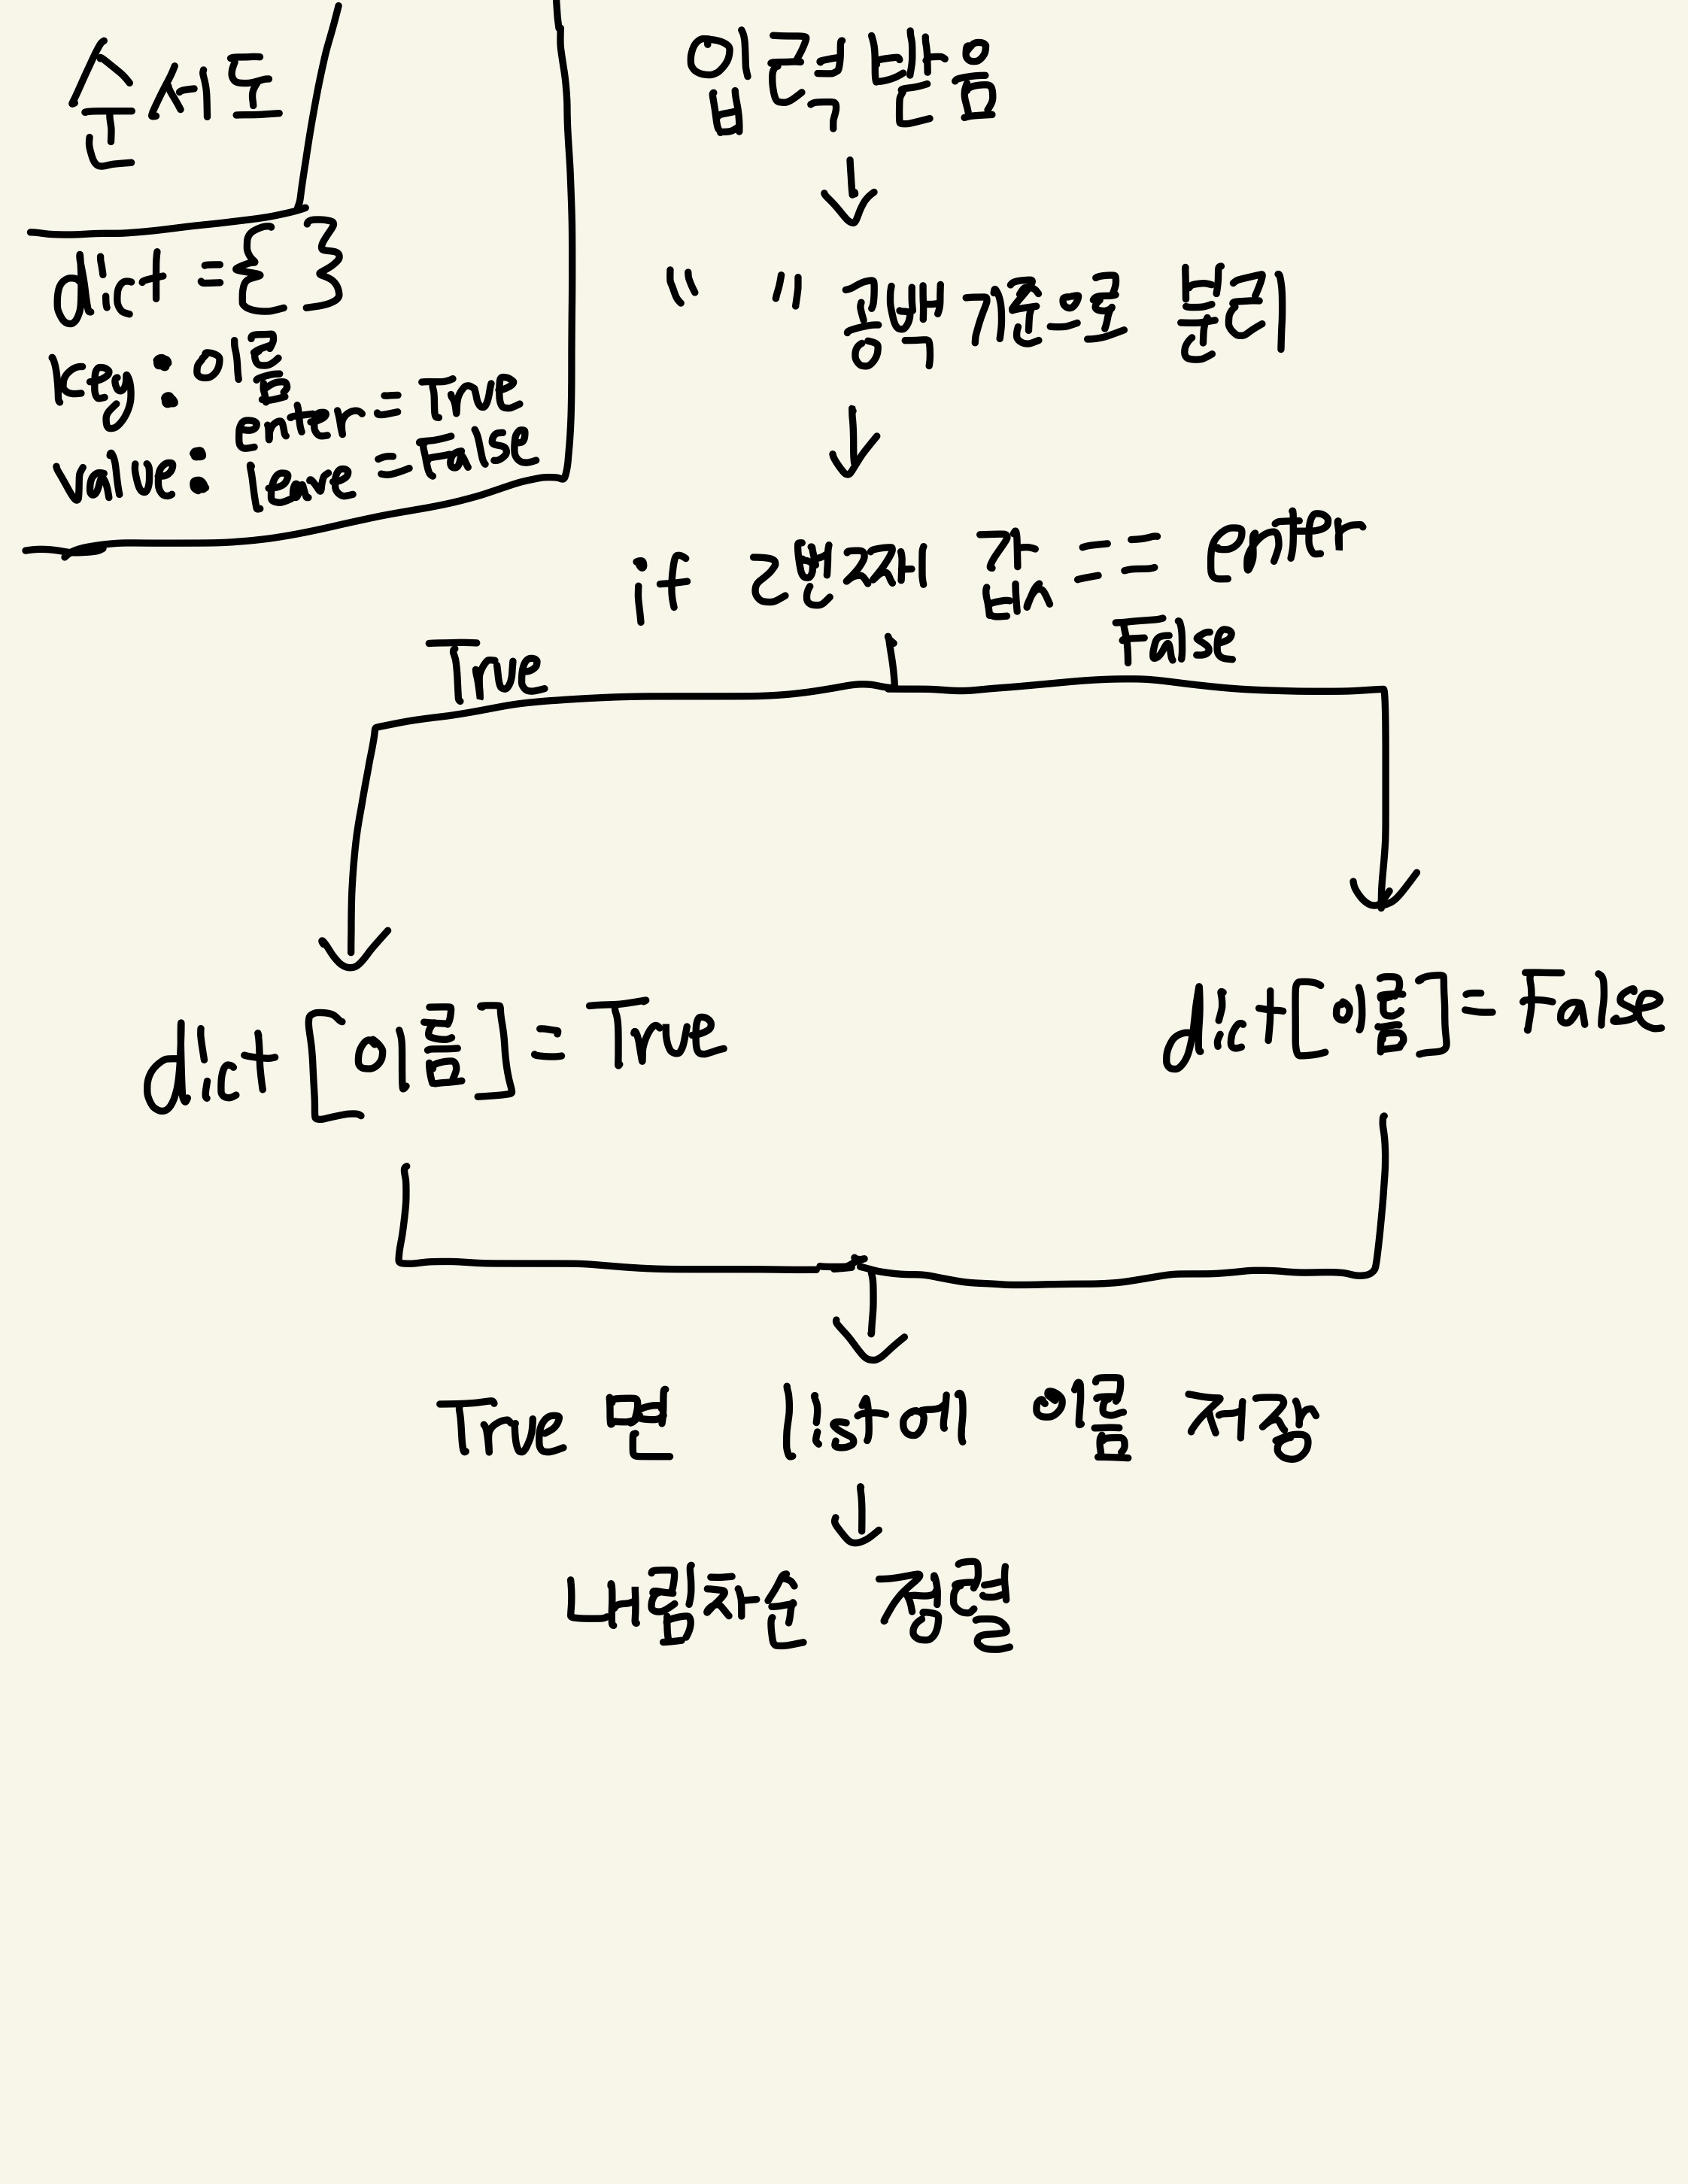 순서도
dict = { }
key : 이름
value : enter = True
leave = False
입력 받음
" " 공백기준으로 분리
if 2번째 값 == enter
True
False
dict [이름] = True
dict[이름] = False
True 면 list에 이름 저장
내림차순 정렬